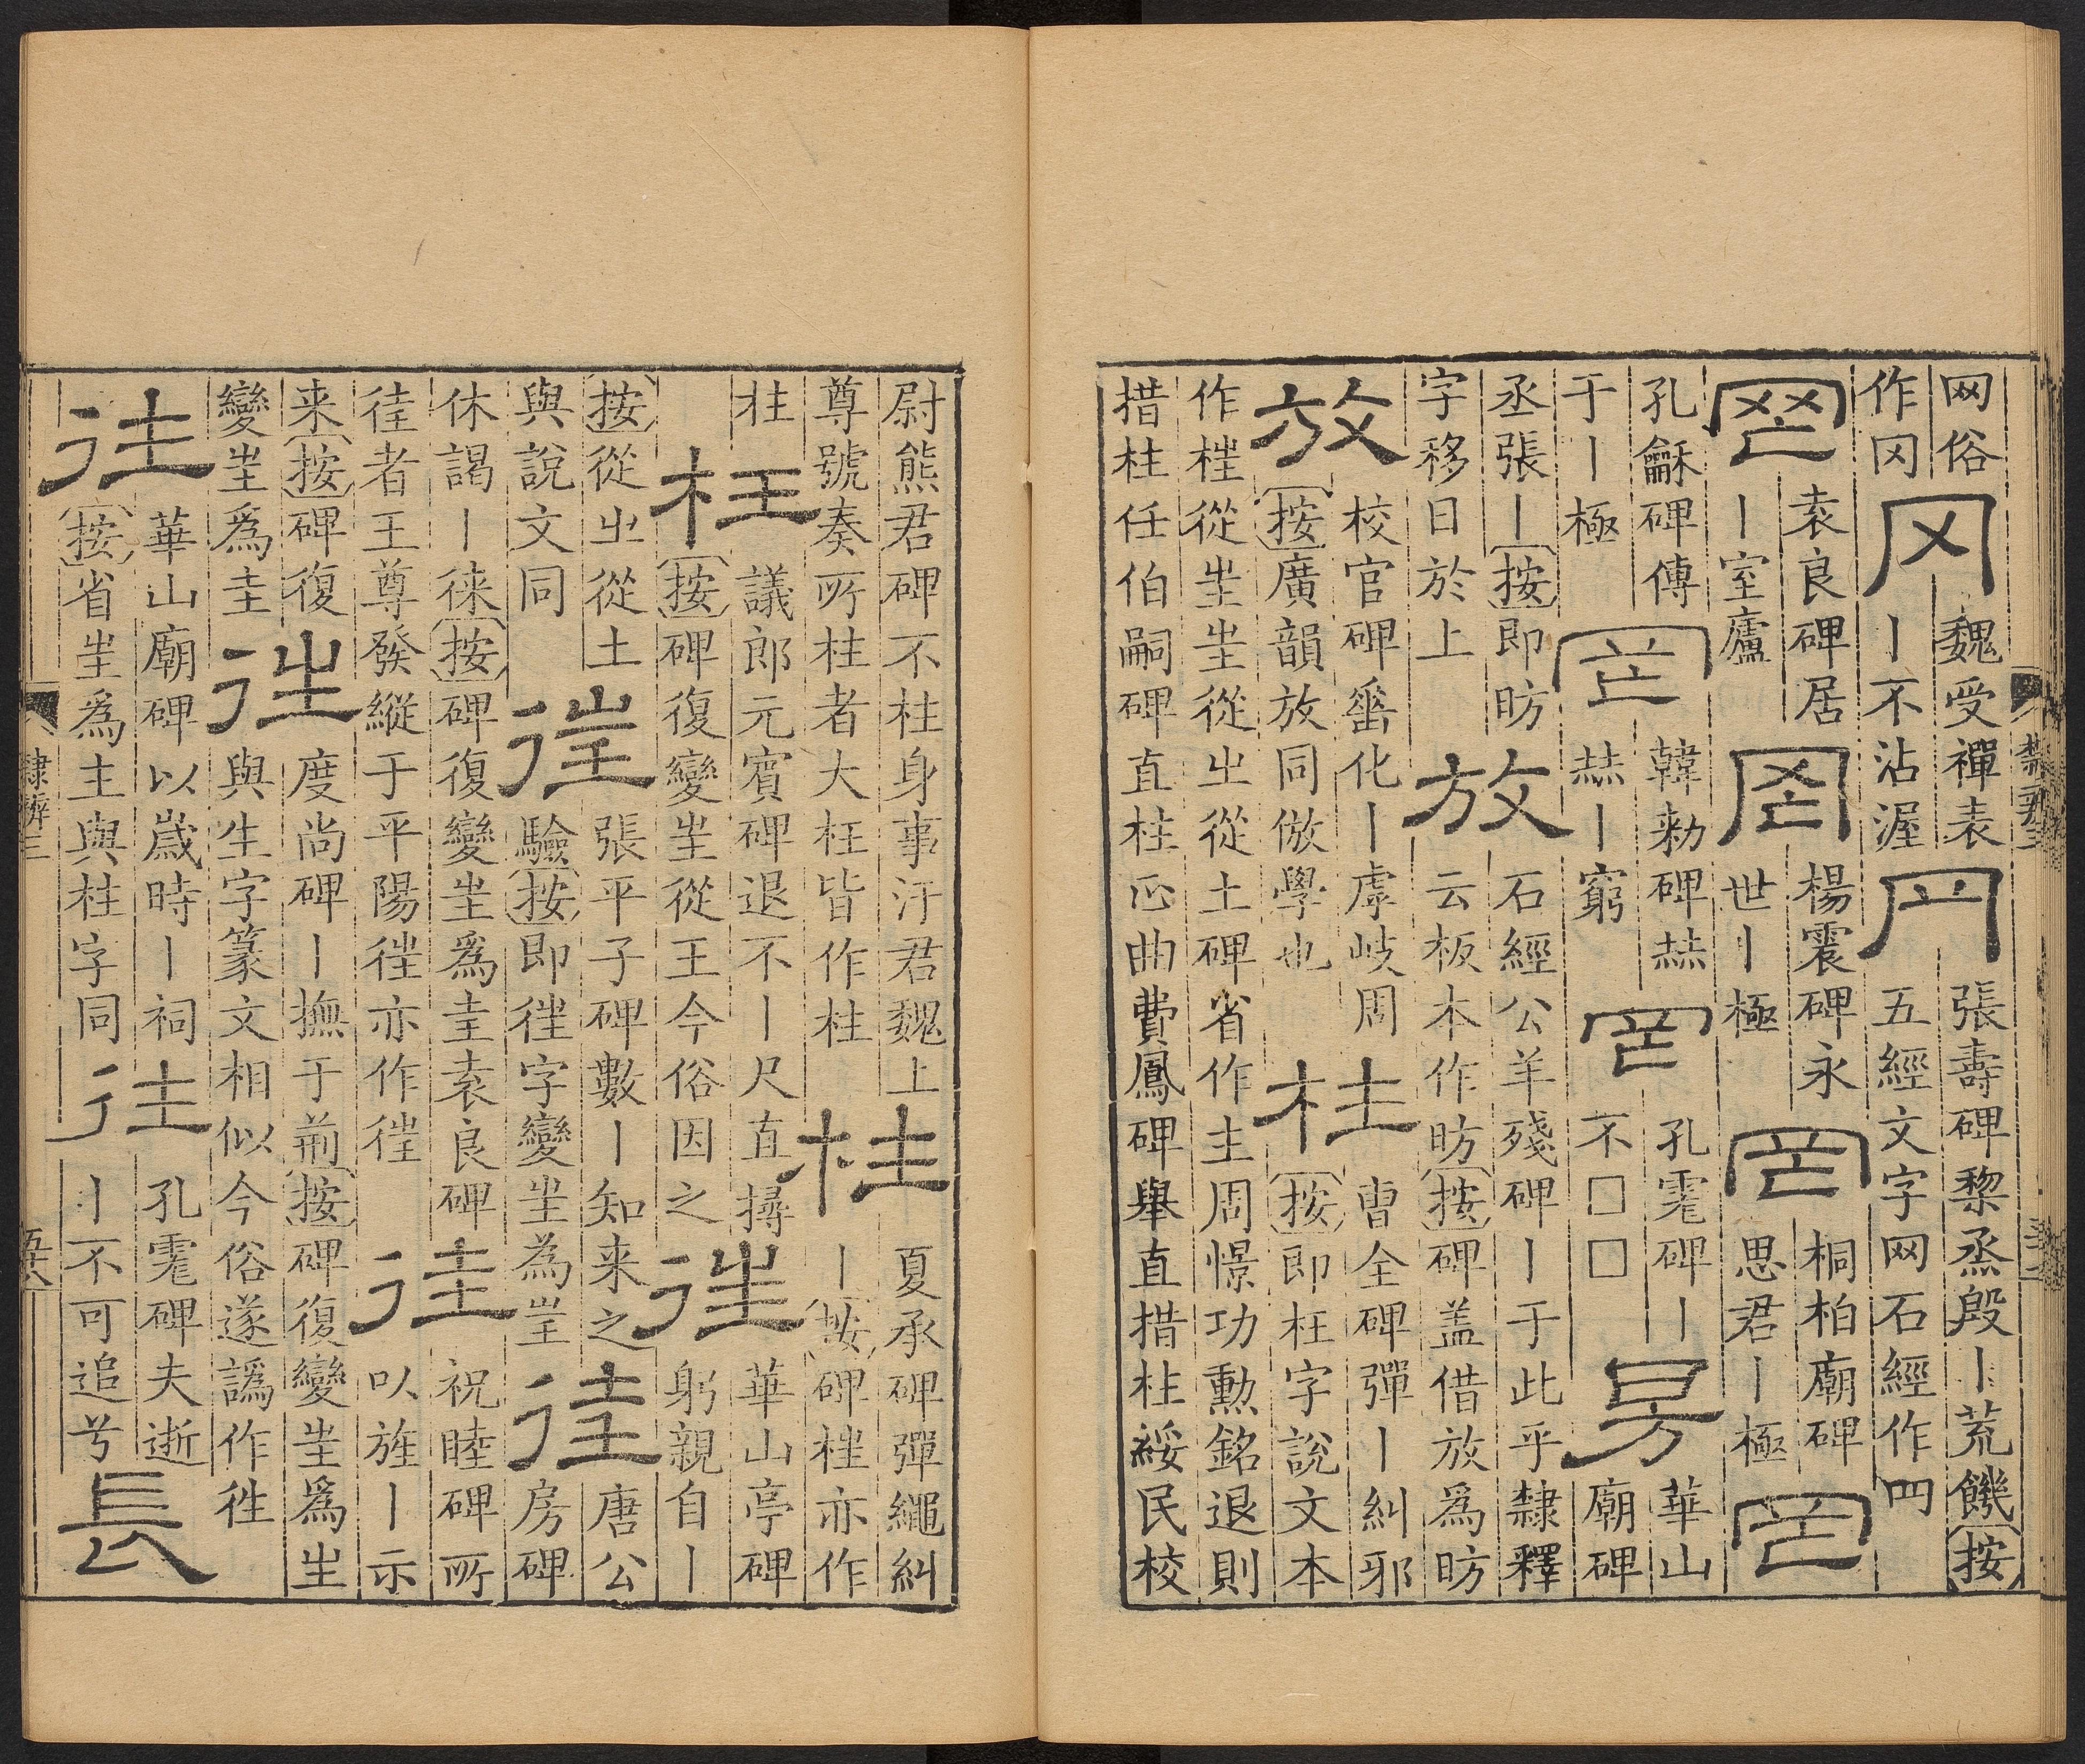 网俗
作冈
冈
魏受禪表
丨不沾渥
𦉰
張壽碑黎烝殷丨荒饑按
五經文字网石經作罒
罔
袁良碑居
丨室廬
罔
楊震碑永
世丨極
罔
桐柏廟碑
思君丨極
罔
孔龢碑傅
于丨極
罔
韓勑碑赫
赫丨窮
罔
孔宙碑丨
不□□
昉
華山
廟碑
丞張丨按即昉
字移日於上
放
石經公羊殘碑丨于此乎隸釋
云板本作昉按碑盖借放爲昉
放
校官碑化丨虖岐周
按廣韻放同倣學也
柱
曹全碑彈丨糾邪
按即枉字說文本
作𣒃從㞷㞷從㞢從土碑省作主周憬功勲銘退則
措柱任伯嗣碑直柱正曲費鳳碑舉直措柱綏民校
尉熊君碑不柱身事汙君魏上
尊號奏所柱者大枉皆作柱
桂
夏承碑彈繩糾
丨按碑𣒃亦作
柱
枉
議郎元賓碑退不丨尺直撏
按碑復變㞷從王今俗因之
往
華山亭碑
躬親自丨
按從㞢從土
與說文同
𢓸
張平子碑數丨知来之
驗按即𢓸字變㞷為𡉚
徍
唐公
房碑
休謁丨徠按碑復變㞷爲圭袁良碑
徍者王尊發縱于平陽𢓸亦作徍
徍
祝睦碑所
㕥旌丨示
来按碑復
變㞷爲圭
徃
度尚碑丨撫于荊按碑復變㞷爲生
與生字篆文相似今俗遂譌作徃
往
華山廟碑以歲時丨祠
按省㞷爲主與柱字同
往
孔宙碑夫逝
丨不可追兮
長
隸辨三
五十六